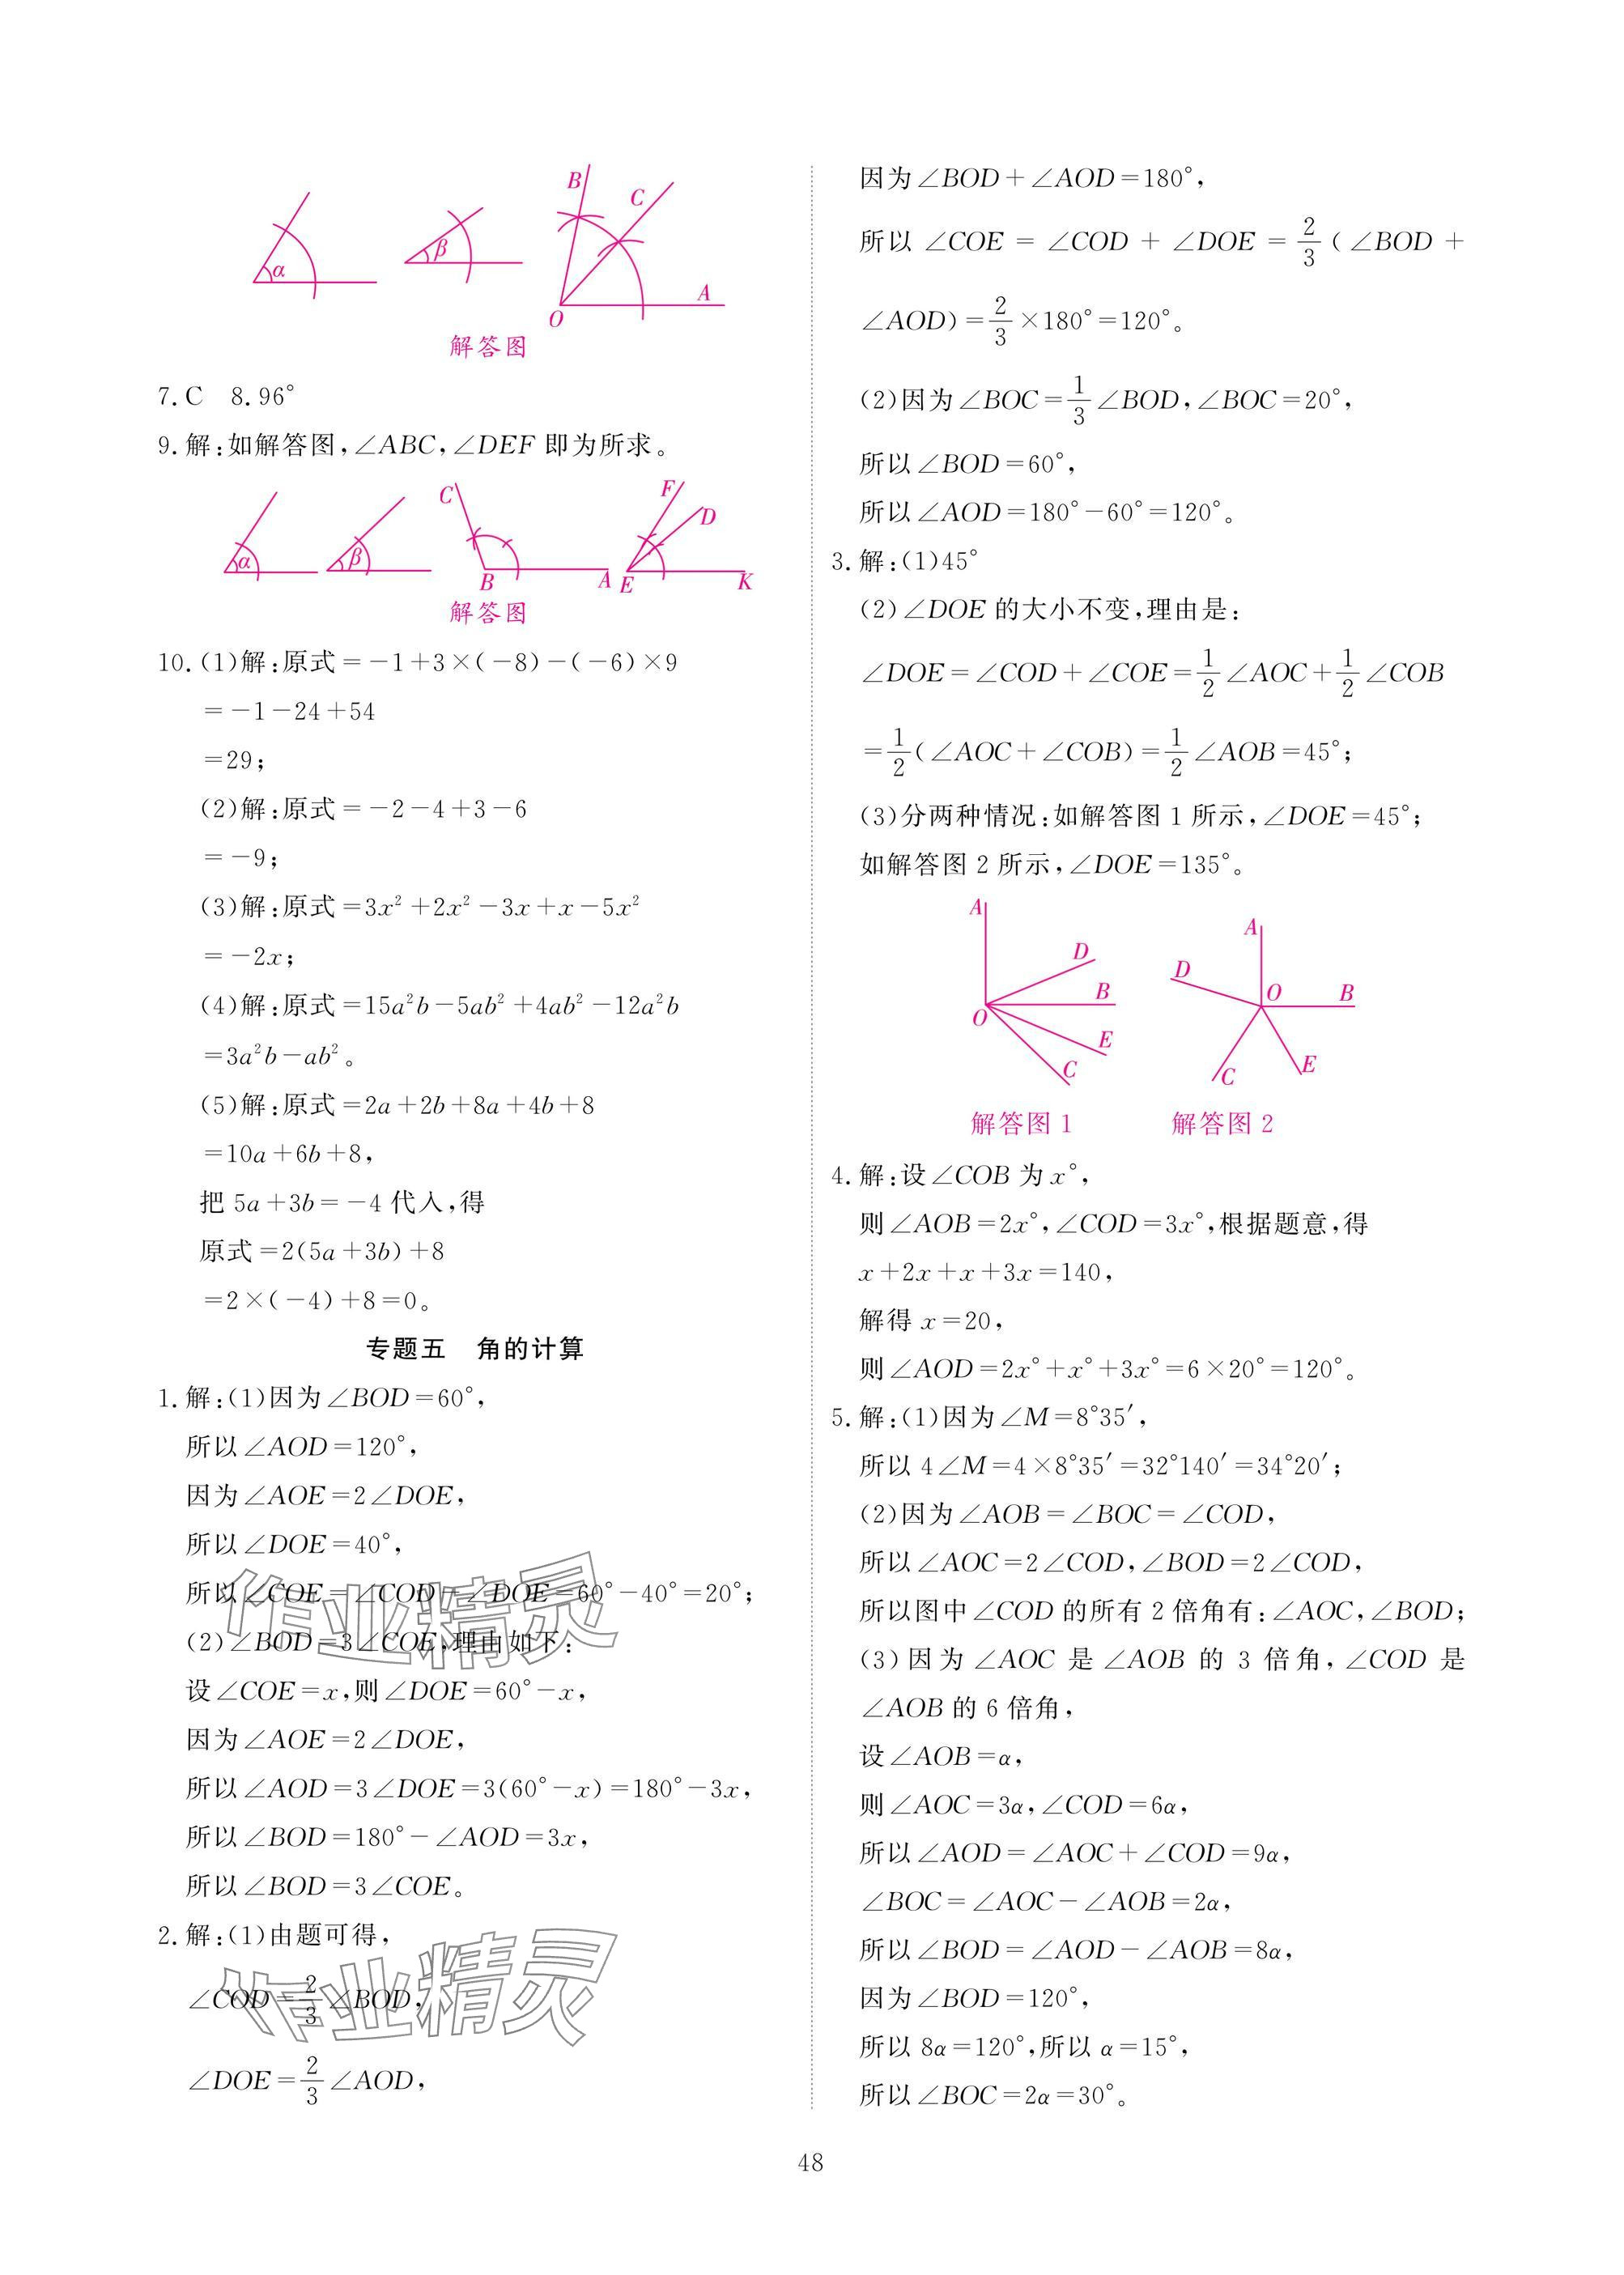 B
C
α
β
A
O
解答图
7.C 8.96°
9.解:如解答图,∠ABC,∠DEF 即为所求。
C
F
D
α
β
B
A
E
K
解答图
10.(1)解:原式=-1+3×(-8)-(-6)×9
=-1-24+54
=29;
(2)解:原式=-2-4+3-6
=-9;
(3)解:原式=3x²+2x²-3x+x-5x²
=-2x;
(4)解:原式=15a²b-5ab²+4ab²-12a²b
=3a²b-ab²。
(5)解:原式=2a+2b+8a+4b+8
=10a+6b+8,
把 5a+3b=-4 代入,得
原式=2(5a+3b)+8
=2×(-4)+8=0。
专题五 角的计算
1.解:(1)因为∠BOD=60°,
所以∠AOD=120°,
因为∠AOE=2∠DOE,
所以∠DOE=40°,
所以∠COE=∠COD-∠DOE=60°-40°=20°;
(2)∠BOD=3∠COE,理由如下:
设∠COE=x,则∠DOE=60°-x,
因为∠AOE=2∠DOE,
所以∠AOD=3∠DOE=3(60°-x)=180°-3x,
所以∠BOD=180°-∠AOD=3x,
所以∠BOD=3∠COE。
2.解:(1)由题可得,
∠COD=2/3×∠BOD,
∠DOE=2/3∠AOD,
作业精灵
作业精灵
因为∠BOD+∠AOD=180°,
所以 ∠COE = ∠COD + ∠DOE = 2/3(∠BOD +
∠AOD)=2/3×180°=120°。
(2)因为∠BOC=1/3∠BOD,∠BOC=20°,
所以∠BOD=60°,
所以∠AOD=180°-60°=120°。
3.解:(1)45°
(2)∠DOE 的大小不变,理由是:
∠DOE=∠COD+∠COE=1/2∠AOC+1/2∠COB
=1/2(∠AOC+∠COB)=1/2∠AOB=45°;
(3)分两种情况:如解答图 1 所示,∠DOE=45°;
如解答图 2 所示,∠DOE=135°。
A
D
B
O
E
C
A
D
O
B
C
E
解答图 1 解答图 2
4.解:设∠COB 为 x°,
则∠AOB=2x°,∠COD=3x°,根据题意,得
x+2x+x+3x=140,
解得 x=20,
则∠AOD=2x°+x°+3x°=6×20°=120°。
5.解:(1)因为∠M=8°35′,
所以 4∠M=4×8°35′=32°140′=34°20′;
(2)因为∠AOB=∠BOC=∠COD,
所以∠AOC=2∠COD,∠BOD=2∠COD,
所以图中∠COD 的所有 2 倍角有:∠AOC,∠BOD;
(3)因为 ∠AOC 是 ∠AOB 的 3 倍角,∠COD 是
∠AOB 的 6 倍角,
设∠AOB=α,
则∠AOC=3α,∠COD=6α,
所以∠AOD=∠AOC+∠COD=9α,
∠BOC=∠AOC-∠AOB=2α,
所以∠BOD=∠AOD-∠AOB=8α,
因为∠BOD=120°,
所以 8α=120°,所以 α=15°,
所以∠BOC=2α=30°。
48